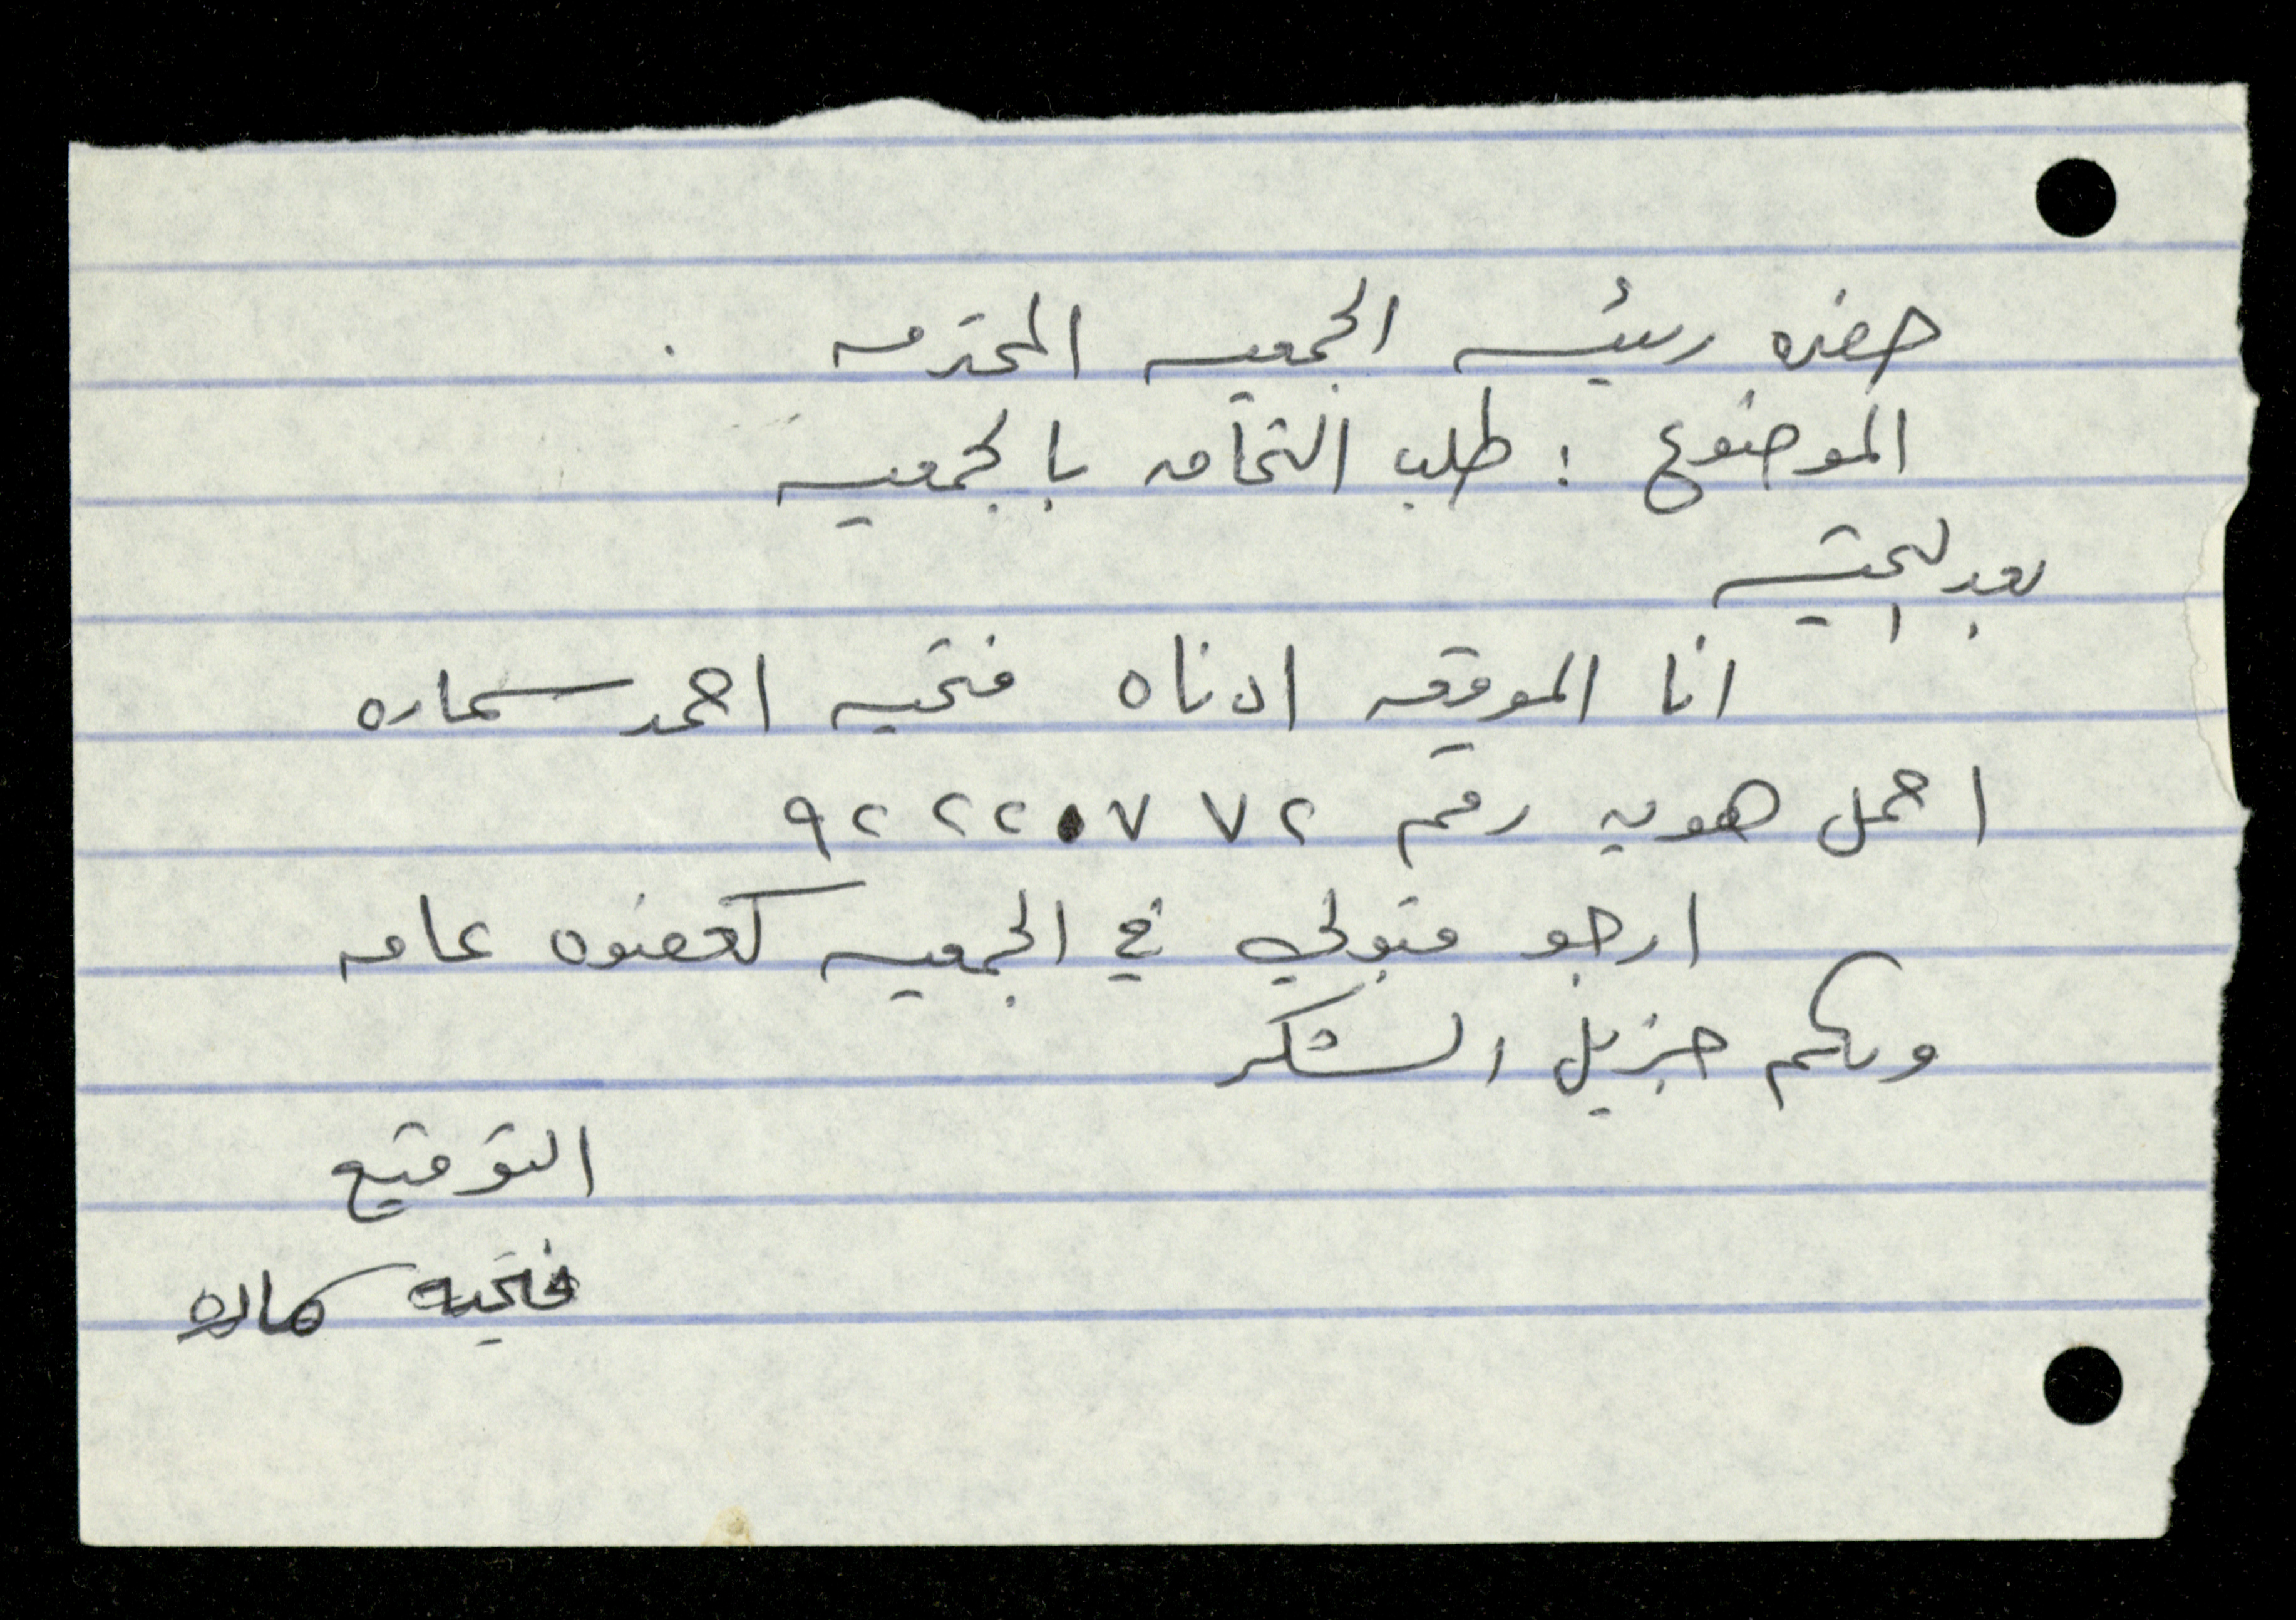 حضره رئيسه الجمعيه المحترمه .
الموضوع : طلب التحاق بالجمعيه
بعد التحيه
انا الموقعه ادناه فتحيه احمد سماره
احمل هويه رقم ٩٢٢٢٠٧٧٢
ارجو قبولي في الجمعيه كعضوه عامه
ولكم جزيل الشكر
التوقيع
فتحيه سماره